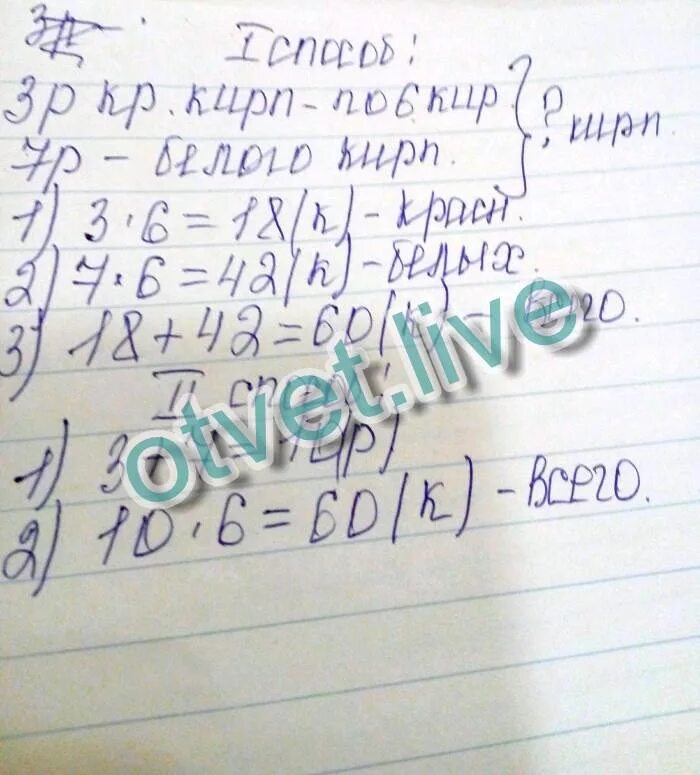 I способ:
3р кр. кирп - по 6 кир. } ? кирп.
7р - белого кирп.
1) 3·6=18(к) - красн.
2) 7·6=42(к) - белых.
3) 18+42=60(к) - всего.
II способ:
1) 3+7=10(р)
2) 10·6=60(к) - всего.
otvet.live